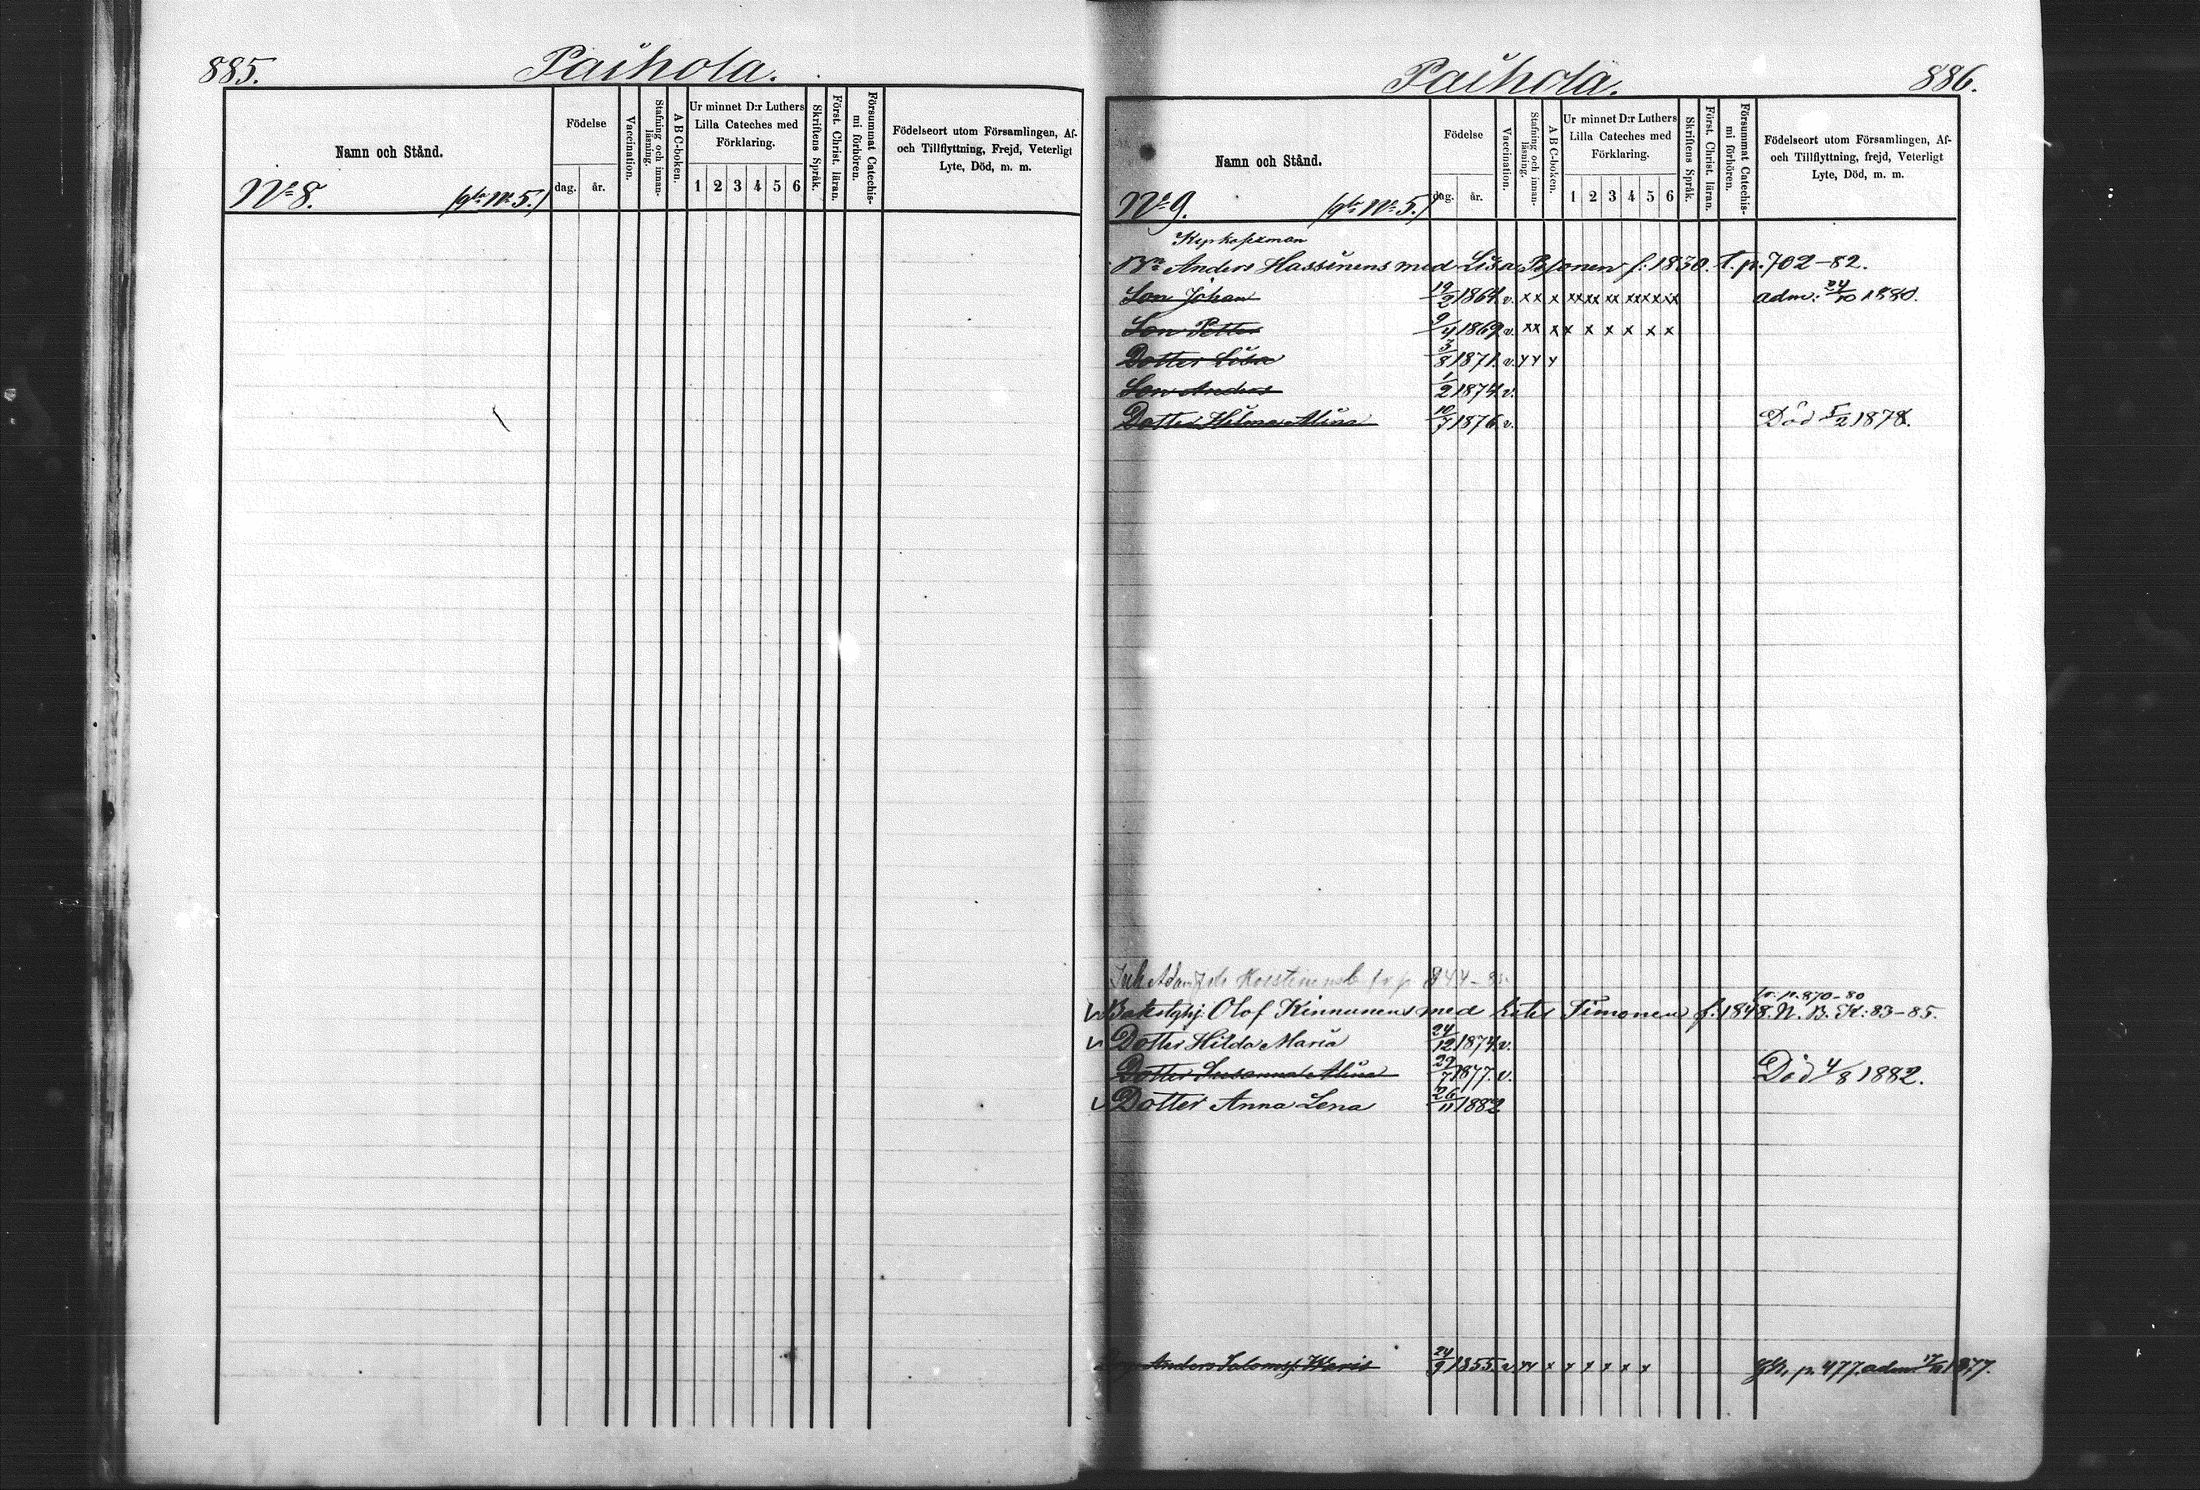 885.
Paihola.
Namn och Stånd.
Födelse
dag. år.
Vaccination.
Stafning och innanläsning.
A B C-boken.
Ur minnet D:r Luthers Lilla Cateches med Förklaring.
1 2 3 4 5 6
Skriftens Språk.
Först. Christ. läran.
Försummat Catechismi förhören.
Födelseort utom Församlingen, Af- och Tillflyttning, Frejd, Veterligt Lyte, Död, m. m.
No 8.
No 5.)
Paihola.
886.
Namn och Stånd.
Födelse
dag. år.
Vaccination.
Stafning och innanläsning.
A B C-boken.
Ur minnet D:r Luthers Lilla Cateches med Förklaring.
1 2 3 4 5 6
Skriftens Språk.
Först. Christ. läran.
Försummat Catechismi förhören.
Födelseort utom Församlingen, Af- och Tillflyttning, frejd, Veterligt Lyte, Död, m. m.
No 9.
No 5.)
Anders Hassinens med Lisa f. 1830. t. p. 702-82.
Son Johan 19/2 1864. v. xx x xx xx xx xx x x x adm: 24/10 1880.
Son Petter 9/4 1869 v. xx x x x x x x x
Dotter Lisa 3/8 1871. v. x x x
Son Anders 1/2 1874 v.
Dotter Hilma Alina 10/7 1876 v. Död 5/2 1878.
844-
tr. p. 870-80
Olof Kinnunens med Simonen f. 1848. N. B. K: 83-85.
Dotter Hilda Maria 24/12 1874 v.
Dotter Susanna Alina 29/7 1877. v. Död 4/8 1882.
Dotter Anna Lena 26/11 1882
Anders 24/9 1855. v xx x x x x x x p. 477. adm. 1877.